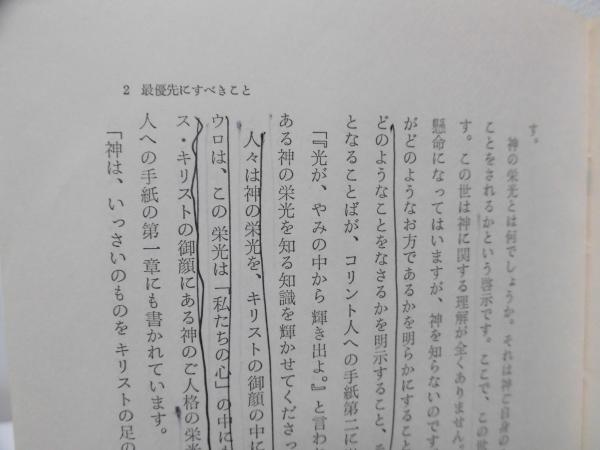 2 最優先にすべきこと
す。
神の栄光とは何でしょうか。それは神ご自身の
ことをされるかという啓示です。ここで、この世
す。この世は神に関する理解が全くありません。
懸命になってはいますが、神を知らないのです
がどのようなお方であるかを明らかにすること
どのようなことをなさるかを明示すること、そ
となることばが、コリント人への手紙第二に
「『光が、やみの中から輝き出よ。』と言わ
ある神の栄光を知る知識を輝かせてくださっ
人々は神の栄光を、キリストの御顔の中に
ウロは、この栄光は「私たちの心」の中に
ス・キリストの御顔にある神のご人格の栄光
人への手紙の第一章にも書かれています。
「神は、いっさいのものをキリストの足の